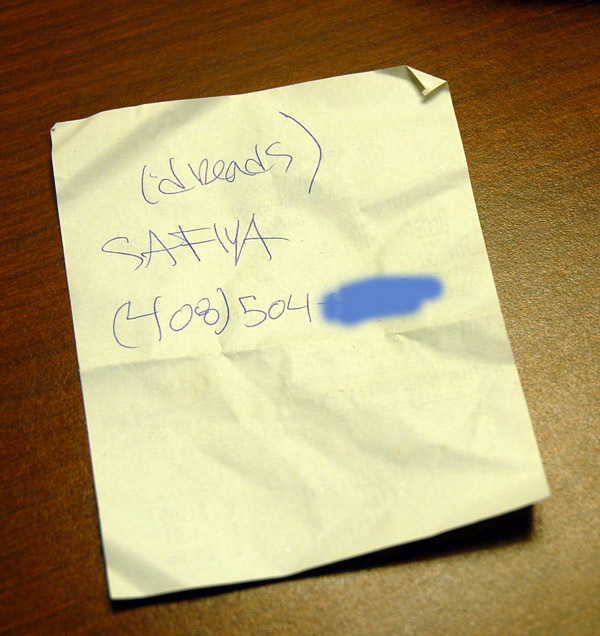 (dreads)
SAFIYA
(408) 504-